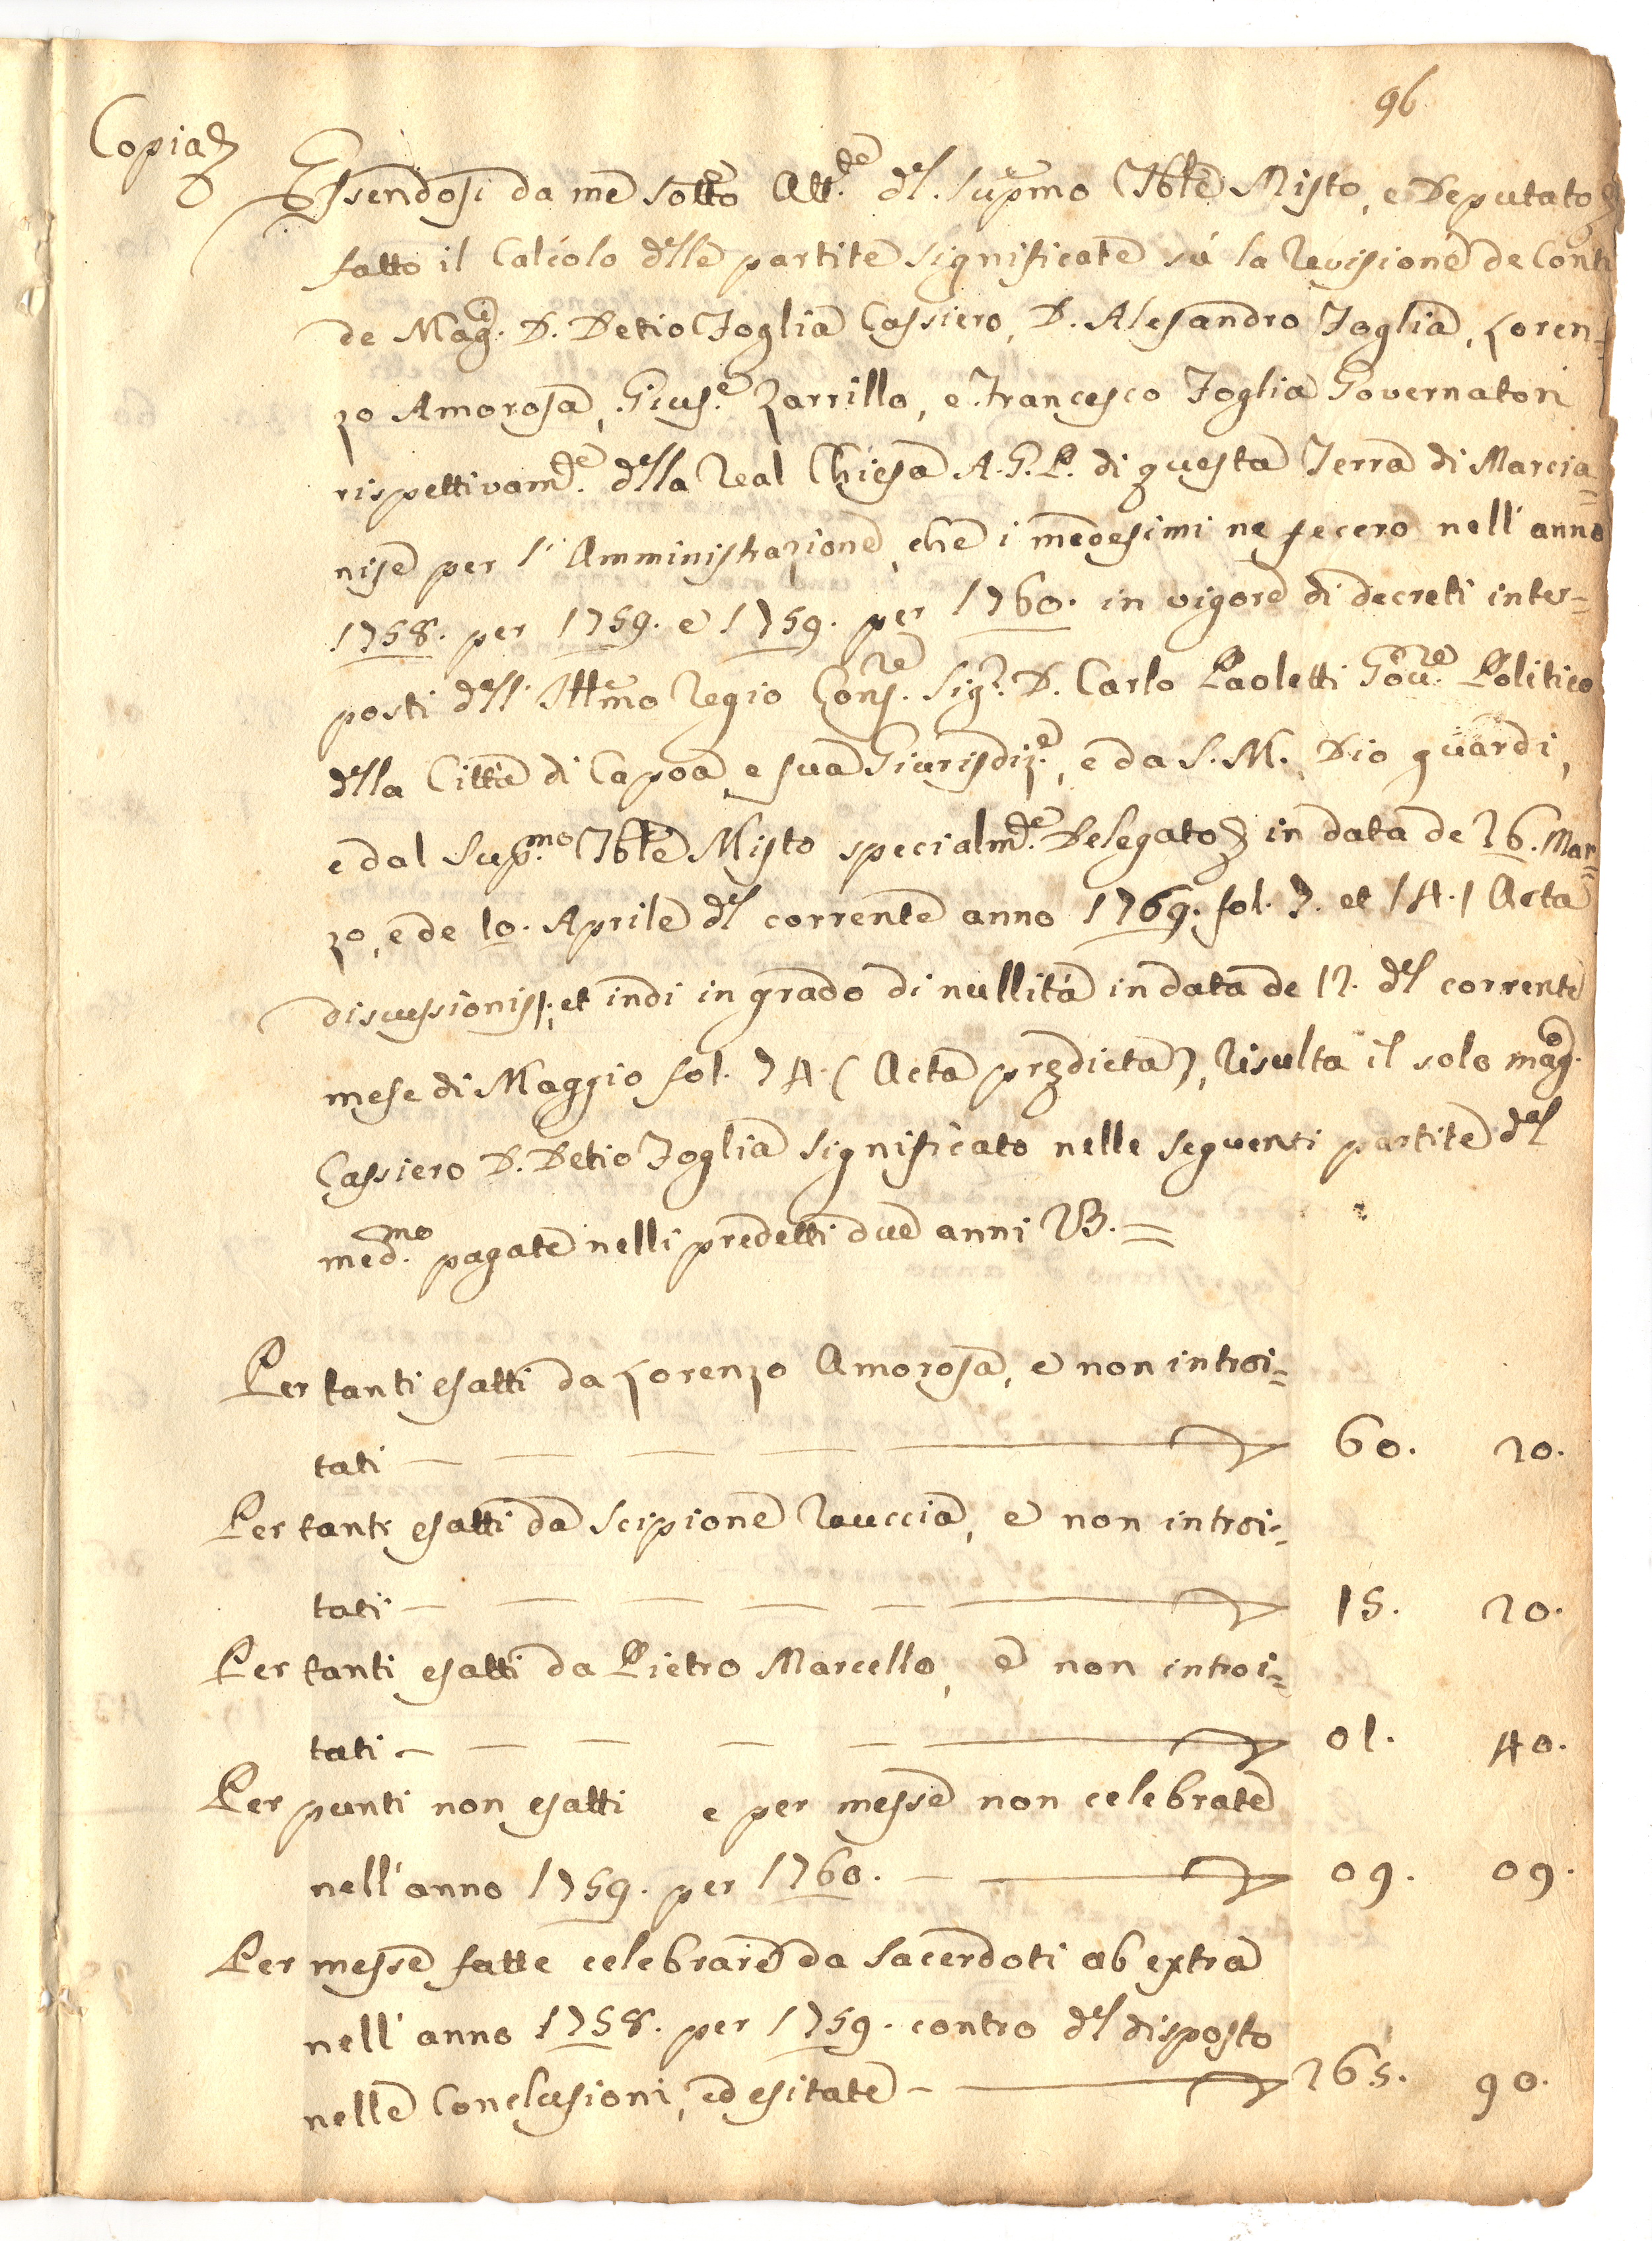 96
Copia
Essendosi da me sotto Att.de del. Supmo Tble Misto, e Deputato
fatto il Calcolo delle partite significate sú la Revisione de Conti
de Mag.ci D. Detio Foglia Cassiero, D. Alesandro Foglia, Loren=
zo Amorosa, Gius.e Zarrillo, e Francesco Foglia Governatori
rispettivam.te della Real Chiesa A.G.P. di questa Terra di Marcia=
nise per l'Amministrazione, che i medesimi ne fecero nell'anno
1758. per 1759. e 1759. per 1760. in vigore di decreti inter=
posti dell' Illmo Regio Cons.re Sig.r D. Carlo Paoletti Gov.re Politico
della Città di Capoa, e sua Giurisdiz.e, e da S.M. Dio guardi,
e dal Sup.mo Tble Misto specialm.te Delegato in data de 26. Mar=
zo, e de 10. Aprile del corrente anno 1769. fol. 7. et 14. / Acta
discussionis/, et indi in grado di nullitá in data de 12. del corrente
mese di Maggio fol. 74. (Acta prædicta), Risulta il solo mag.co
Cassiero D. Detio Foglia significato nelle seguenti partite del
med.mo pagate nelli predetti due anni VB. =
Per tanti esatti da Lorenzo Amorosa, e non introi=
tati — — — — 60. 20.
Per tanti esatti da Scipione Rauccia, e non introi=
tati — — — — — 15. 20.
Per tanti esatti da Pietro Marcello, e non introi=
tati — — — — — 01. 40.
Per punti non esatti e per messe non celebrate
nell'anno 1759. per 1760. — — 09. 09.
Per messe fatte celebrare da Sacerdoti ab extra
nell'anno 1758. per 1759. contro del disposto
nelle Conclusioni, ed esitate — — 265. 90.